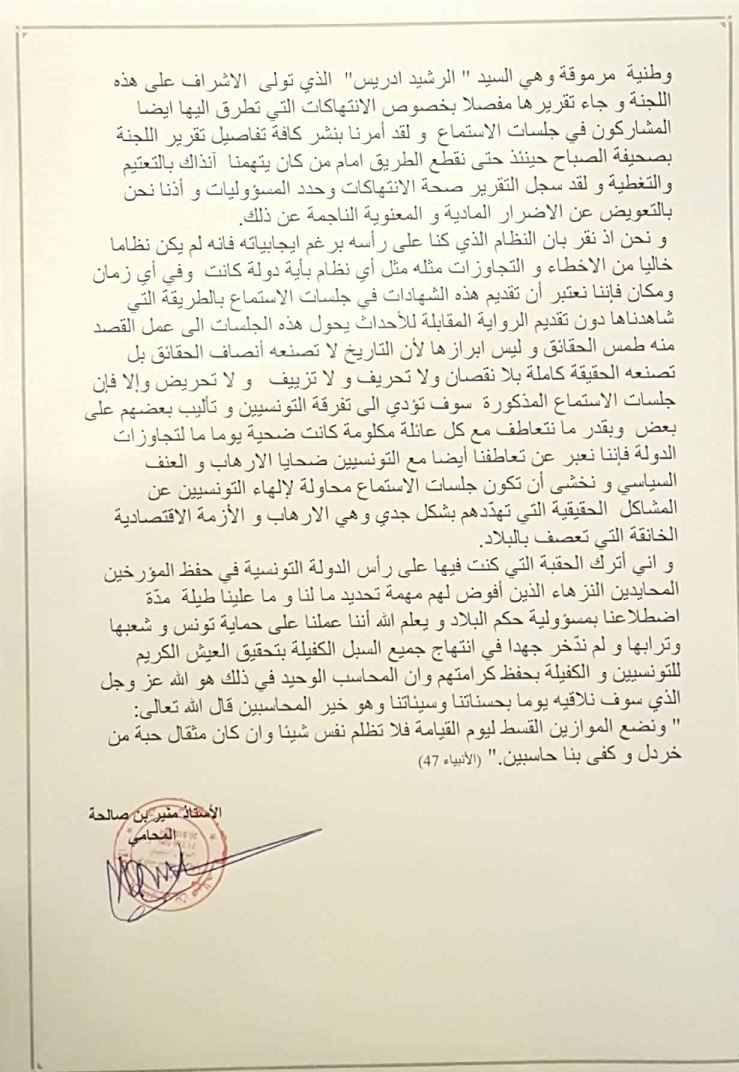 وطنية مرموقة وهي السيد " الرشيد ادريس" الذي تولى الاشراف على هذه
اللجنة و جاء تقريرها مفصلا بخصوص الانتهاكات التي تطرق اليها ايضا
المشاركون في جلسات الاستماع و لقد أمرنا بنشر كافة تفاصيل تقرير اللجنة
بصحيفة الصباح حينئذ حتى نقطع الطريق امام من كان يتهمنا آنذاك بالتعتيم
والتغطية و لقد سجل التقرير صحة الانتهاكات وحدد المسؤوليات و أذنا نحن
بالتعويض عن الاضرار المادية و المعنوية الناجمة عن ذلك.
و نحن اذ نقر بان النظام الذي كنا على رأسه برغم ايجابياته فانه لم يكن نظاما
خاليا من الاخطاء و التجاوزات مثله مثل أي نظام بأية دولة كانت وفي أي زمان
ومكان فإننا نعتبر أن تقديم هذه الشهادات في جلسات الاستماع بالطريقة التي
شاهدناها دون تقديم الرواية المقابلة للأحداث يحول هذه الجلسات الى عمل القصد
منه طمس الحقائق و ليس ابرازها لأن التاريخ لا تصنعه أنصاف الحقائق بل
تصنعه الحقيقة كاملة بلا نقصان ولا تحريف و لا تزييف و لا تحريض وإلا فإن
جلسات الاستماع المذكورة سوف تؤدي الى تفرقة التونسيين و تأليب بعضهم على
بعض وبقدر ما نتعاطف مع كل عائلة مكلومة كانت ضحية يوما ما لتجاوزات
الدولة فإننا نعبر عن تعاطفنا أيضا مع التونسيين ضحايا الارهاب و العنف
السياسي و نخشى أن تكون جلسات الاستماع محاولة لإلهاء التونسيين عن
المشاكل الحقيقية التي تهدّدهم بشكل جدي وهي الارهاب و الأزمة الاقتصادية
الخانقة التي تعصف بالبلاد.
و اني أترك الحقبة التي كنت فيها على رأس الدولة التونسية في حفظ المؤرخين
المحايدين النزهاء الذين أفوض لهم مهمة تحديد ما لنا و ما علينا طيلة مدّة
اضطلاعنا بمسؤولية حكم البلاد و يعلم الله أننا عملنا على حماية تونس و شعبها
وترابها و لم ندّخر جهدا في انتهاج جميع السبل الكفيلة بتحقيق العيش الكريم
للتونسيين و الكفيلة بحفظ كرامتهم وان المحاسب الوحيد في ذلك هو الله عز وجل
الذي سوف نلاقيه يوما بحسناتنا وسيئاتنا وهو خير المحاسبين قال الله تعالى:
" ونضع الموازين القسط ليوم القيامة فلا تظلم نفس شيئا وان كان مثقال حبة من
خردل و كفى بنا حاسبين." (الأنبياء 47)
الأستاذ منير بن صالحة
المحامي